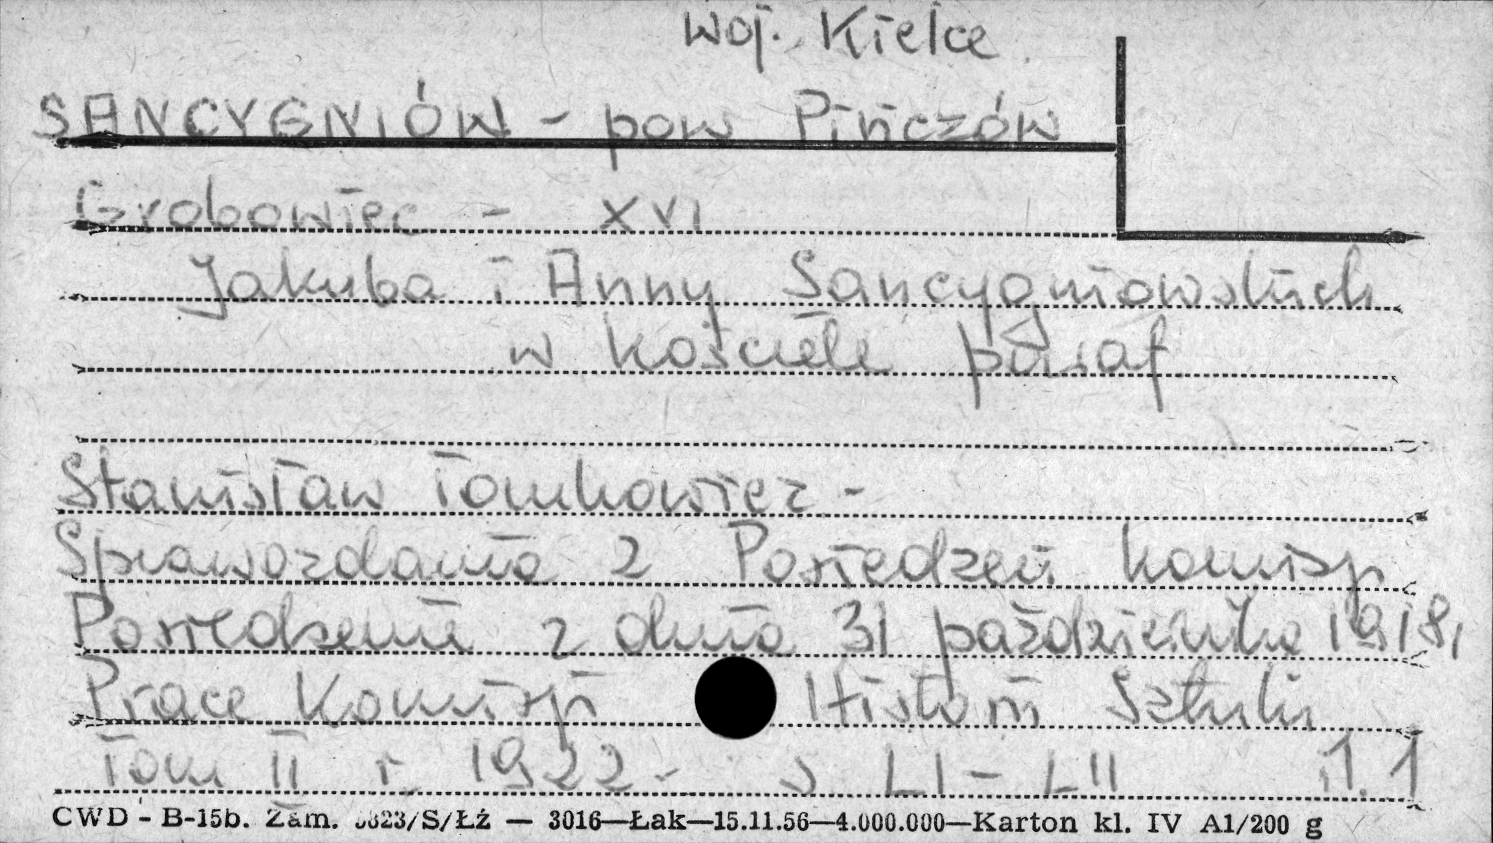 woj. Kielce
SANCYGNIÓW - pow Pińczów
Grobowiec - XVI
Jakuba i Anny Sancygniowskich
w kościele paraf.
Stanisław Tomkowicz -
Sprawozdania z Posiedzeń Komisji
Posiedzenie z dnia 31 października 1918,
Prace Komisji Historii Sztuki
Tom II r. 1922 - s LI - LII 1.1
CWD - B-15b. Zam. 3823/S/Łż — 3016—Łak—15.11.56—4.000.000—Karton kl. IV A1/200 g